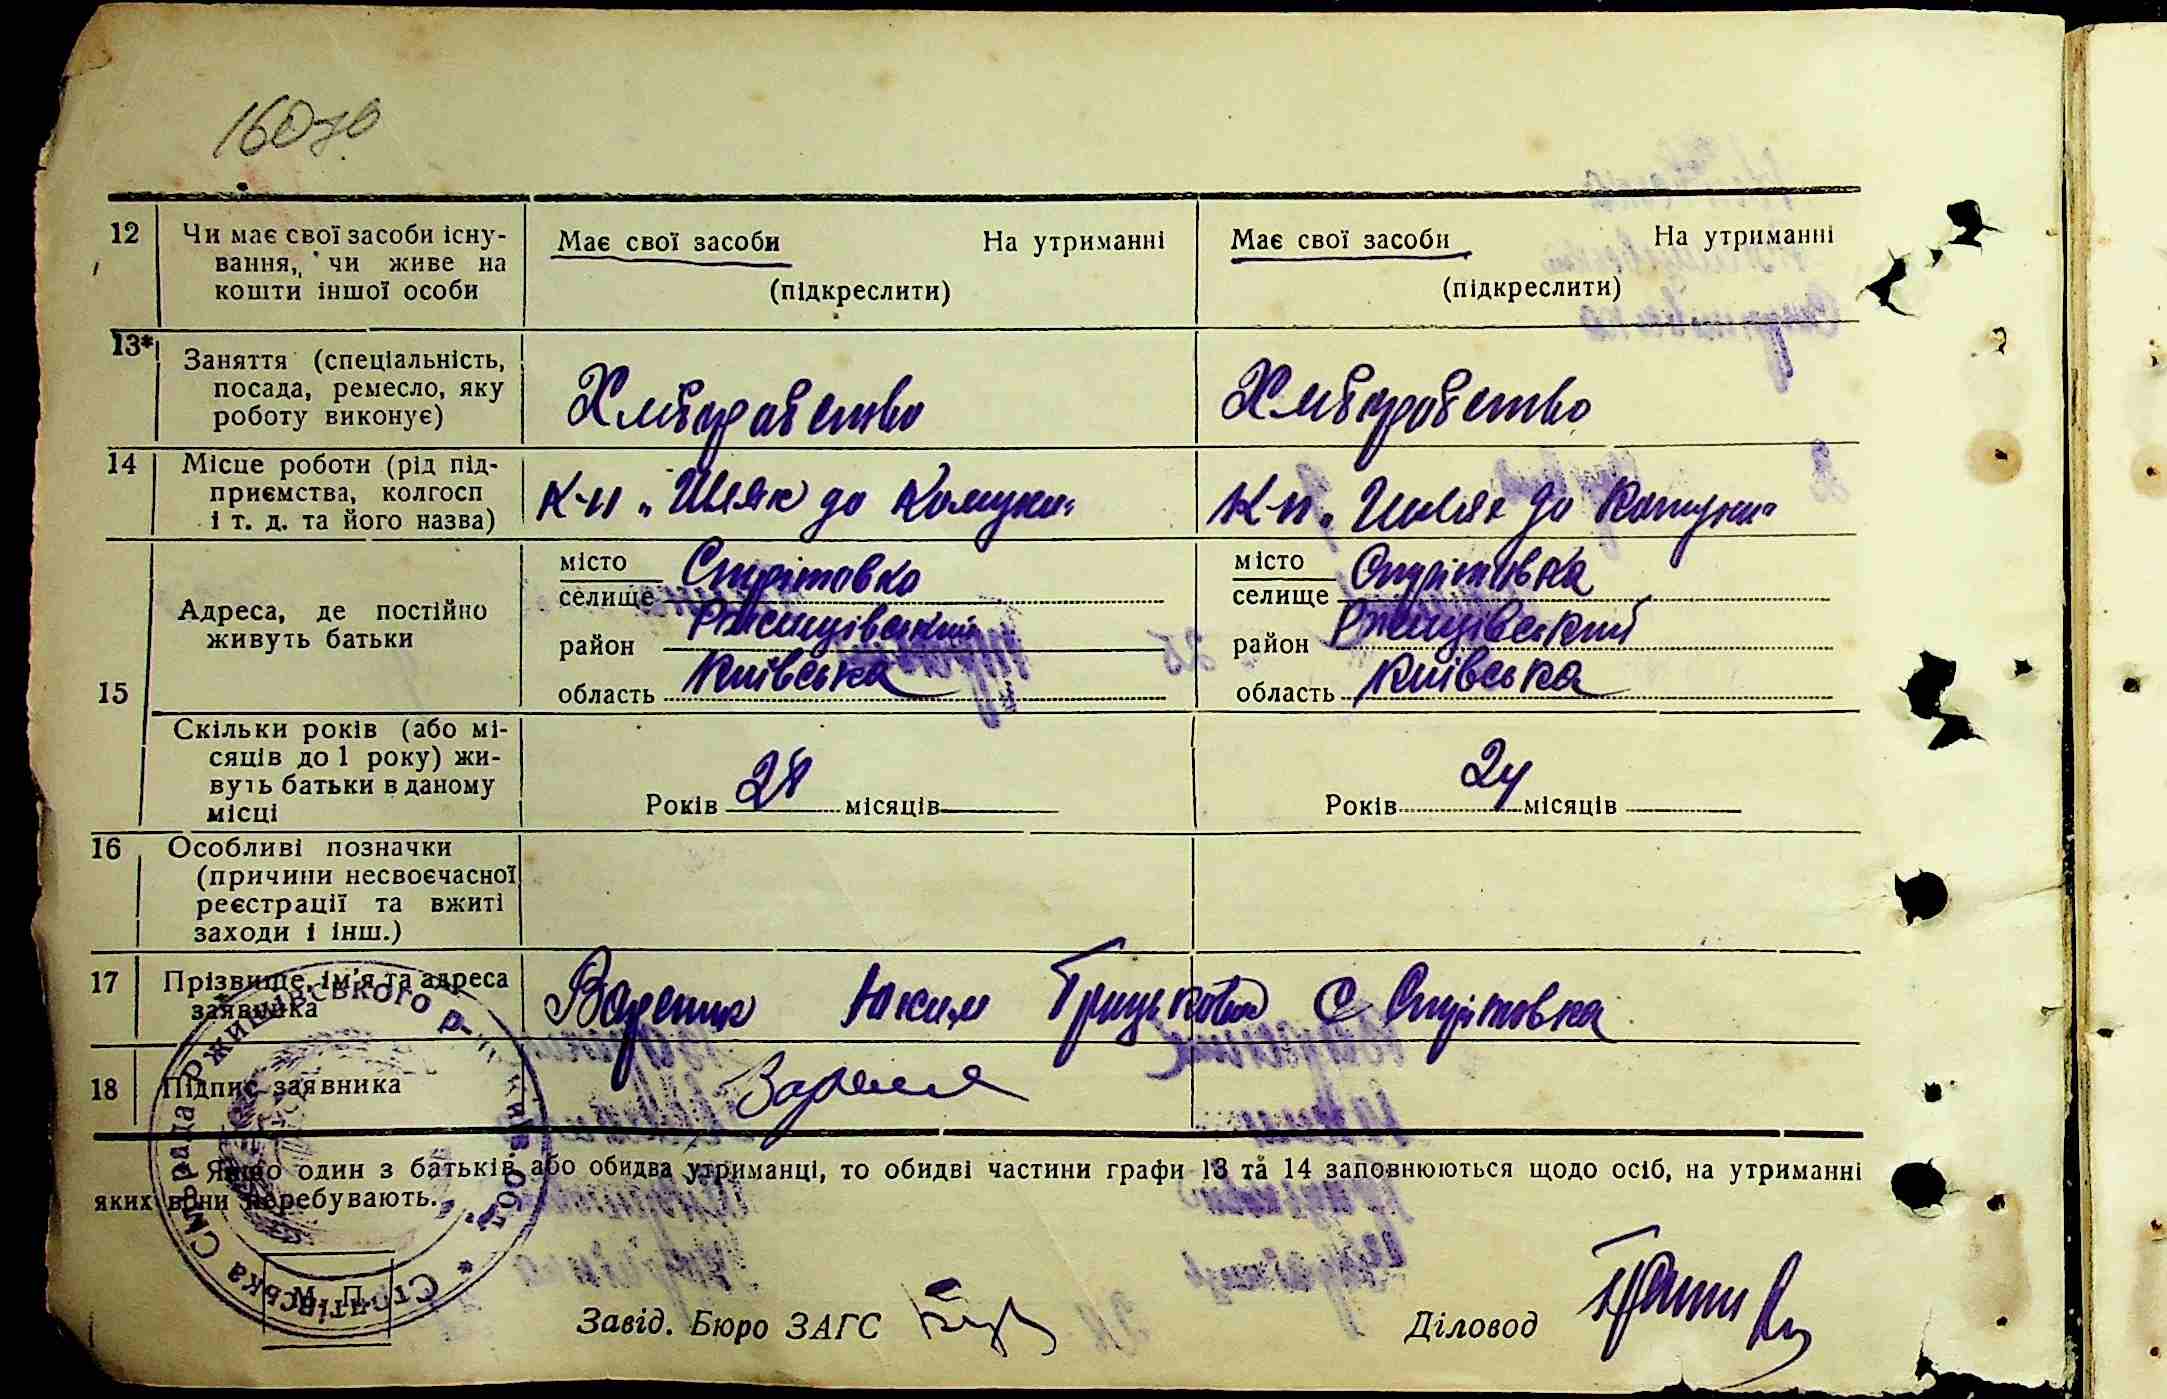 12 Чи має свої засоби існу-
вання, чи живе на
кошти іншої особи
Має свої засоби На утриманні
(підкреслити)
Має свої засоби На утриманні
(підкреслити)
13* Заняття (спеціальність,
посада, ремесло, яку
роботу виконує)
Хліборобство
Хліборобство
14 Місце роботи (рід під-
приємства, колгосп
і т. д. та його назва)
К-п „Шлях до Комуни"
К-п „Шлях до Комуни"
15 Адреса, де постійно
живуть батьки
місто
селище Стрітовка
район Ржищівський
область Київська
місто
селище Стрітовка
район Ржищівський
область Київська
Скільки років (або мі-
сяців до 1 року) жи-
вуть батьки в даному
місці
Років 28 місяців
Років 24 місяців
16 Особливі позначки
(причини несвоєчасної
реєстрації та вжиті
заходи і інш.)
17 Прізвище, ім'я та адреса
заявника
Вареник Юхим Грицькович С Стрітовка
18 Підпис заявника
* Якщо один з батьків або обидва утриманці, то обидві частини графи 13 та 14 заповнюються щодо осіб, на утриманні
яких вони перебувають.
М. П.
Завід. Бюро ЗАГС
Діловод